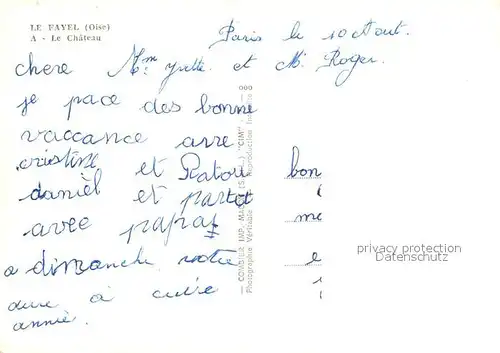 LE FAYEL (Oise)
A - Le Château
Paris le 10 Aout.
chere Mme yvette. et Mr Roger.
je pace des bonne
vaccance avre
cristine et Patou bon
danièl et partot
avec papa me
a dimanche votre e
annié.
COMBIER IMP. MACON (S.-&-L.) "CIM"
Photographie Véritable - Reproduction Interdite
privacy protection
Datenschutz